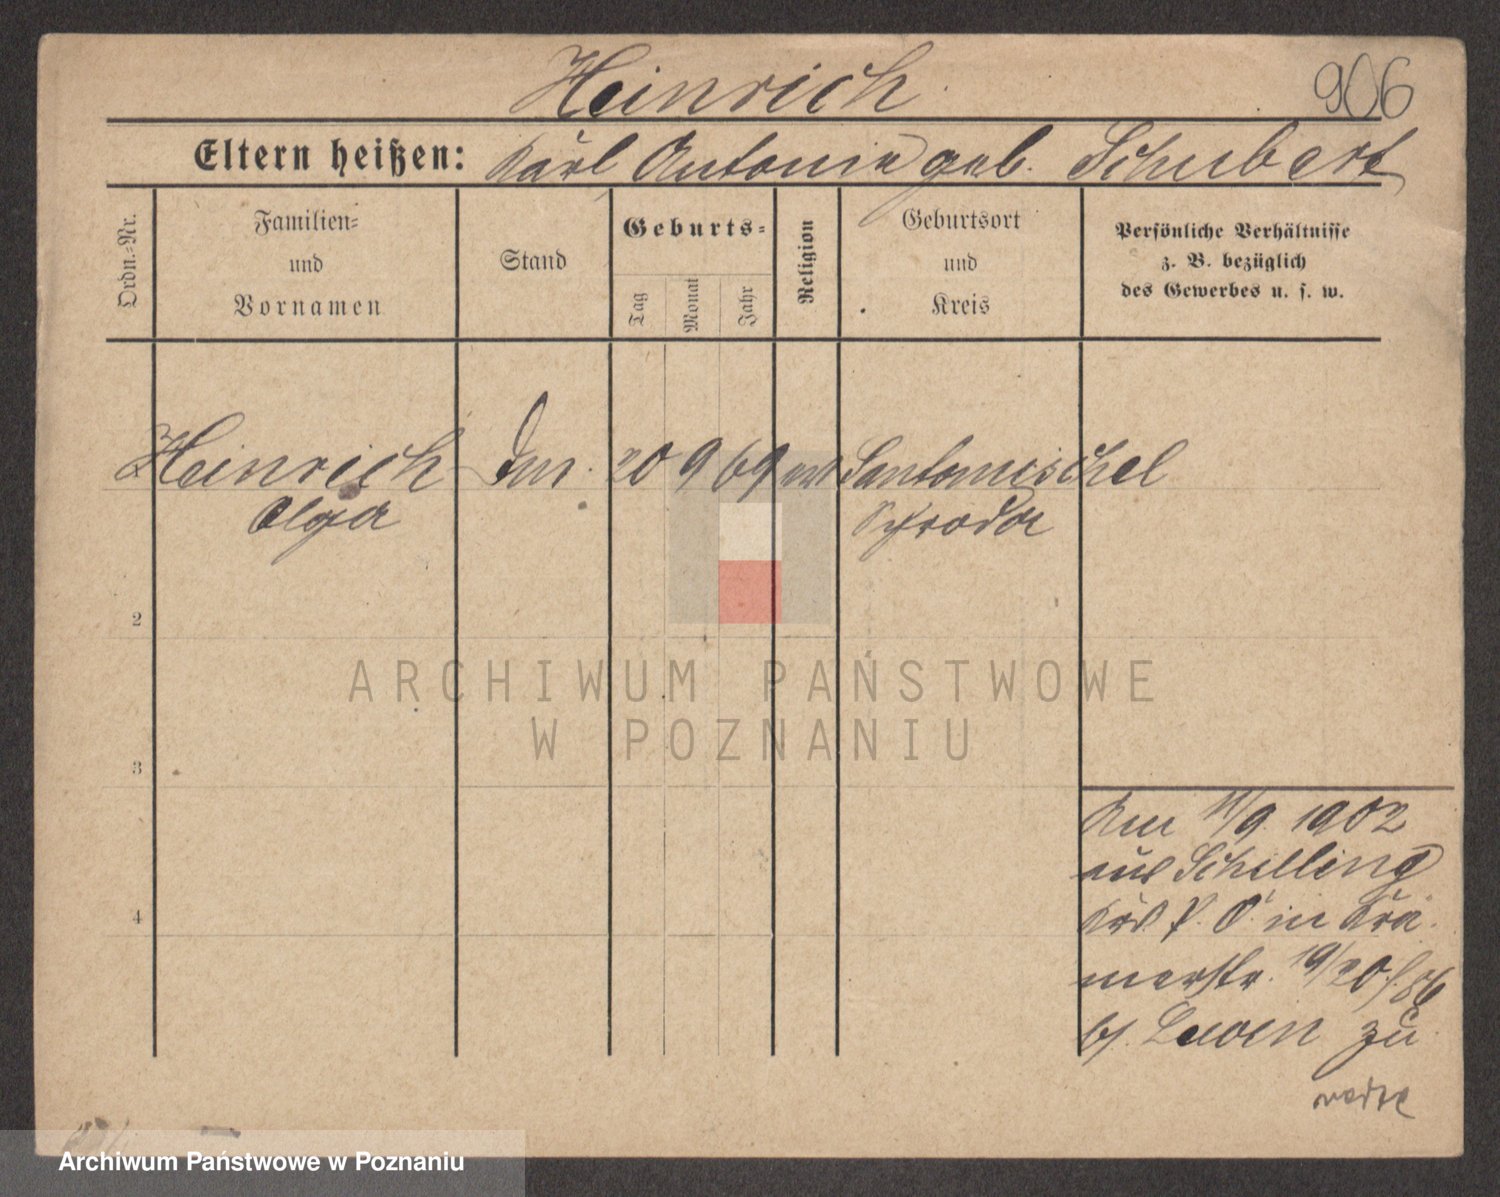 Heinrich
906
Eltern heißen: Karl Antonie geb. Schubert
Ordn.-Nr.
Familien-
und
Vornamen
Stand
Geburts-
Tag
Monat
Jahr
Religion
Geburtsort
und
Kreis
Persönliche Verhältnisse
z. B. bezüglich
des Gewerbes u. s. w.
Heinrich 20 9 69 Santomischel
Olga Schroda
2
3
4
Am 11/9. 1902
aus Schilling
Krs. P. O. in Krä-
merstr. 19/20
bj. Lewin zu
ARCHIWUM PAŃSTWOWE
W POZNANIU
Archiwum Państwowe w Poznaniu